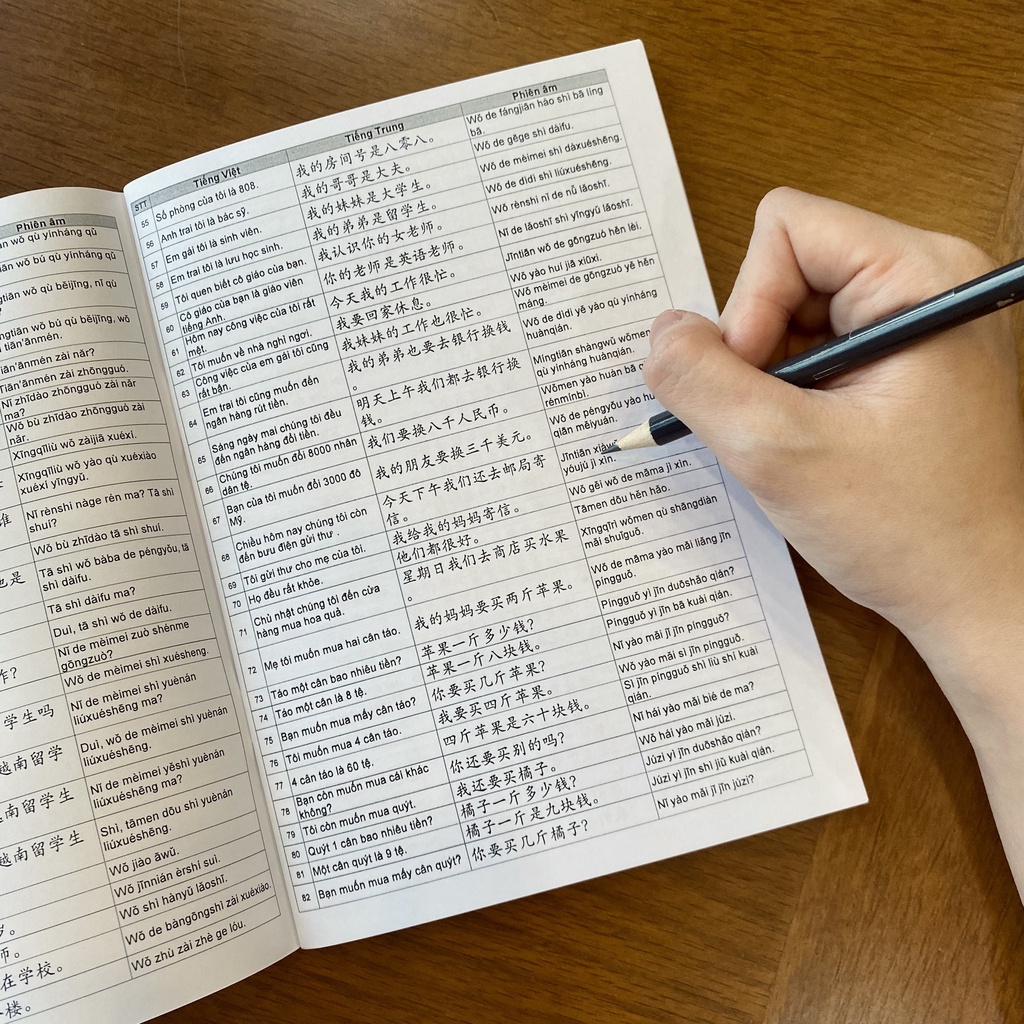 Phiên âm
wǒ qù yínháng qǔ
wǒ bú qù yínháng qǔ
wǒ qù běijīng, nǐ qù
wǒ bú qù běijīng, wǒ
tiān'ānmén.
Tiān'ānmén zài nǎr?
Tiān'ānmén zài zhōngguó.
Nǐ zhīdào zhōngguó zài nǎr
ma?
Wǒ bù zhīdào zhōngguó zài
nǎr.
Xīngqīliù wǒ zàijiā xuéxí.
Xīngqīliù wǒ yào qù xuéxiào
xuéxí yīngyǔ.
谁
Nǐ rènshi nàge rén ma? Tā shì
shuí?
Wǒ bù zhīdào tā shì shuí.
也是
Tā shì wǒ bàba de péngyǒu, tā
shì dàifu.
Tā shì dàifu ma?
Duì, tā shì wǒ de dàifu.
作?
Nǐ de mèimei zuò shénme
gōngzuò?
Wǒ de mèimei shì xuésheng.
学生吗
Nǐ de mèimei shì yuènán
liúxuéshēng ma?
越南留学
Duì, wǒ de mèimei shì yuènán
liúxuéshēng.
南留学生
Nǐ de mèimei yěshì yuènán
liúxuéshēng ma?
越南留学生
Shì, tāmen dōu shì yuènán
liúxuéshēng.
Wǒ jiào āwǔ.
岁。
Wǒ jīnnián èrshí suì.
师。
Wǒ shì hànyǔ lǎoshī.
在学校。
Wǒ de bàngōngshì zài xuéxiào.
楼。
Wǒ zhù zài zhè ge lóu.
STT Tiếng Việt Tiếng Trung Phiên âm
55 Số phòng của tôi là 808. 我的房间号是八零八。 Wǒ de fángjiān hào shì bā líng
bā.
56 Anh trai tôi là bác sỹ. 我的哥哥是大夫。 Wǒ de gēge shì dàifu.
57 Em gái tôi là sinh viên. 我的妹妹是大学生。 Wǒ de mèimei shì dàxuéshēng.
58 Em trai tôi là lưu học sinh. 我的弟弟是留学生。 Wǒ de dìdi shì liúxuéshēng.
59 Tôi quen biết cô giáo của bạn. 我认识你的女老师。 Wǒ rènshi nǐ de nǚ lǎoshī.
60 Cô giáo của bạn là giáo viên
tiếng Anh. 你的老师是英语老师。 Nǐ de lǎoshī shì yīngyǔ lǎoshī.
61 Hôm nay công việc của tôi rất
mệt. 今天我的工作很忙。 Jīntiān wǒ de gōngzuò hěn lèi.
62 Tôi muốn về nhà nghỉ ngơi. 我要回家休息。 Wǒ yào huí jiā xiūxi.
63 Công việc của em gái tôi cũng
rất bận. 我妹妹的工作也很忙。 Wǒ mèimei de gōngzuò yě hěn
máng.
64 Em trai tôi cũng muốn đến
ngân hàng rút tiền. 我的弟弟也要去银行换钱
。 Wǒ de dìdi yě yào qù yínháng
huànqián.
65 Sáng ngày mai chúng tôi đều
đến ngân hàng đổi tiền. 明天上午我们都去银行换
钱。 Míngtiān shàngwǔ wǒmen
qù yínháng huànqián.
66 Chúng tôi muốn đổi 8000 nhân
dân tệ. 我们要换八千人民币。 Wǒmen yào huàn bā
rénmínbì.
67 Bạn của tôi muốn đổi 3000 đô
Mỹ. 我的朋友要换三千美元。 Wǒ de péngyǒu yào
qiān měiyuán.
68 Chiều hôm nay chúng tôi còn
đến bưu điện gửi thư . 今天下午我们还去邮局寄
信。 Jīntiān
yóujú jì xìn.
69 Tôi gửi thư cho mẹ của tôi. 我给我的妈妈寄信。 Wǒ gěi wǒ de māma jì xìn.
70 Họ đều rất khỏe. 他们都很好。 Tāmen dōu hěn hǎo.
71 Chủ nhật chúng tôi đến cửa
hàng mua hoa quả. 星期日我们去商店买水果
。 Xīngqīrì wǒmen qù shāngdiàn
mǎi shuǐguǒ.
72 Mẹ tôi muốn mua hai cân táo. 我的妈妈要买两斤苹果。 Wǒ de māma yào mǎi liǎng jīn
píngguǒ.
73 Táo một cân bao nhiêu tiền? 苹果一斤多少钱? Píngguǒ yì jīn duōshǎo qián?
74 Táo một cân là 8 tệ. 苹果一斤八块钱。 Píngguǒ yì jīn bā kuài qián.
75 Bạn muốn mua mấy cân táo? 你要买几斤苹果? Nǐ yào mǎi jǐ jīn píngguǒ?
76 Tôi muốn mua 4 cân táo. 我要买四斤苹果。 Wǒ yào mǎi sì jīn píngguǒ.
77 4 cân táo là 60 tệ. 四斤苹果是六十块钱。 Sì jīn píngguǒ shì liù shí kuài
qián.
78 Bạn còn muốn mua cái khác
không? 你还要买别的吗? Nǐ hái yào mǎi bié de ma?
79 Tôi còn muốn mua quýt. 我还要买橘子。 Wǒ hái yào mǎi júzi.
80 Quýt 1 cân bao nhiêu tiền? 橘子一斤多少钱? Júzi yì jīn duōshǎo qián?
81 Một cân quýt là 9 tệ. 橘子一斤是九块钱。 Júzi yì jīn shì jiǔ kuài qián.
82 Bạn muốn mua mấy cân quýt? 你要买几斤橘子? Nǐ yào mǎi jǐ jīn júzi?